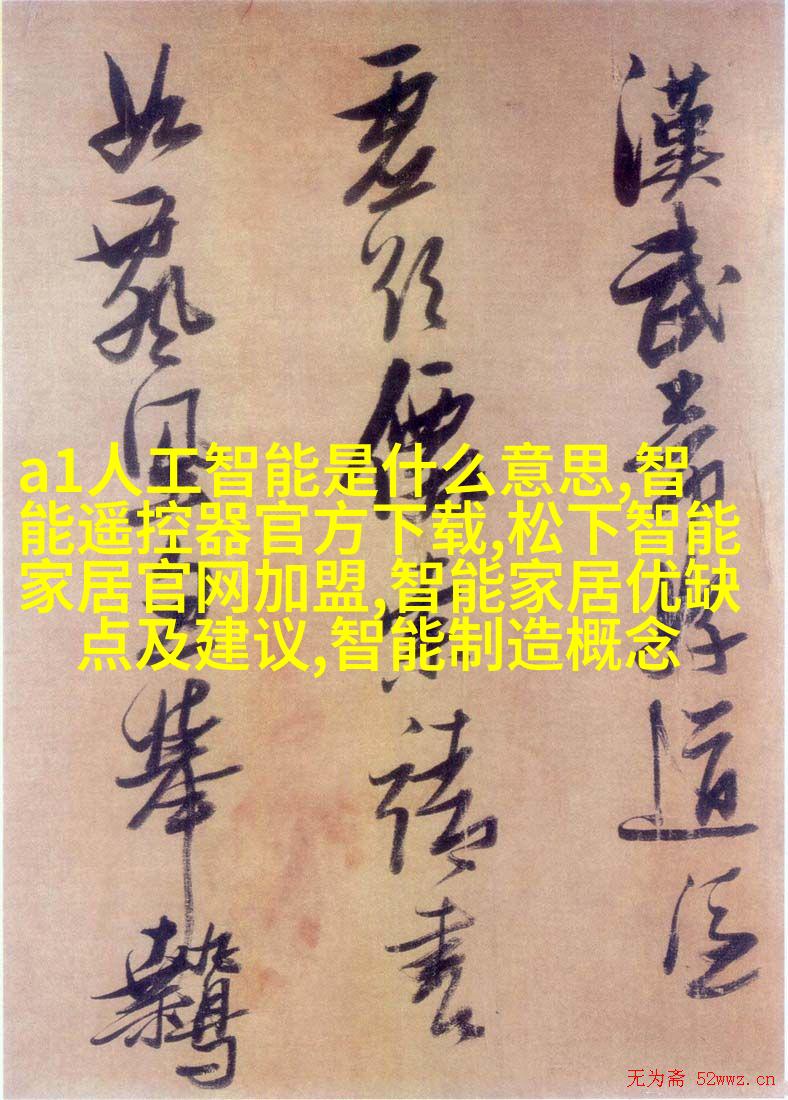 a1人工智能是什么意思,智
能遥控器官方下载,松下智能
家居官网加盟,智能家居优缺
点及建议,智能制造概念
漢武好道
價請書
如舉
无为斋 52wwz.cn